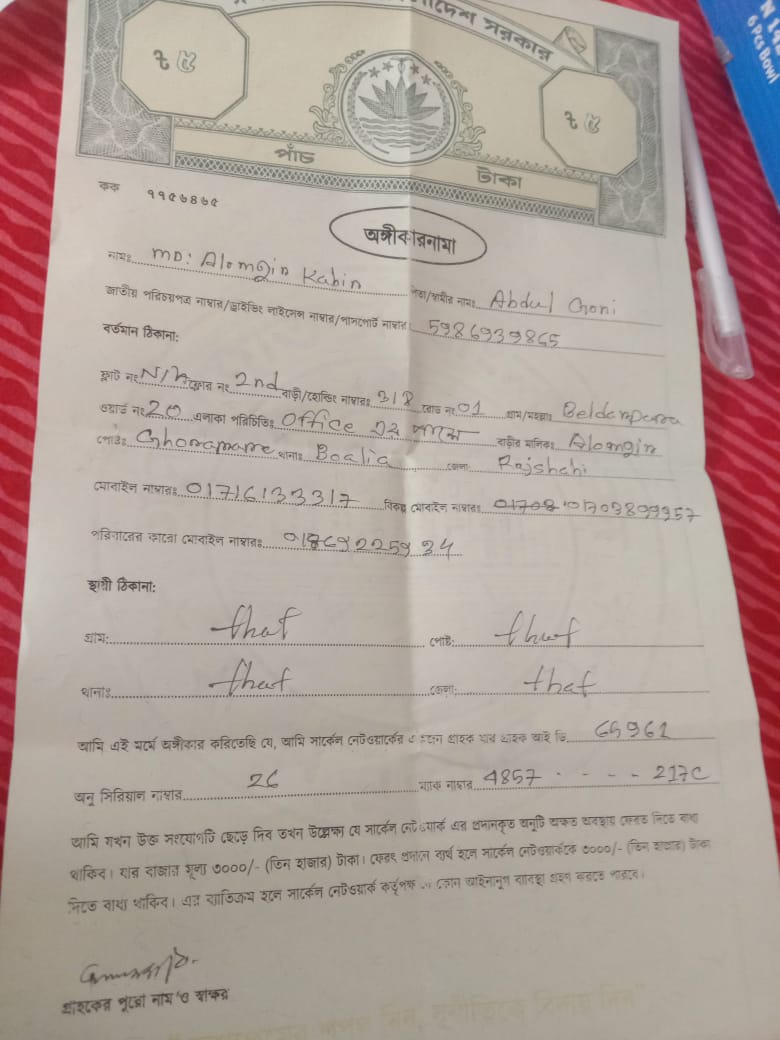 সরকার
৳ ৫
৳ ৫
পাঁচ টাকা
কক ৭৭৫৬৪৬৫
অঙ্গীকারনামা
নামঃ MD: Alomgin Kabin পিতা/স্বামীর নামঃ Abdul Goni
জাতীয় পরিচয়পত্র নাম্বার/ড্রাইভিং লাইসেন্স নাম্বার/পাসপোর্ট নাম্বারঃ 5986939865
বর্তমান ঠিকানা:
ফ্ল্যাট নংঃ N/A ফ্লোর নংঃ 2nd বাড়ী/হোল্ডিং নাম্বারঃ 318 রোড নংঃ 01 গ্রাম/মহল্লাঃ Beldarpara
ওয়ার্ড নংঃ 20 এলাকা পরিচিতিঃ Office এর পাশে বাড়ীর মালিকঃ Alomgin
পোষ্টঃ Ghoramara থানাঃ Boalia জেলাঃ Rajshahi
মোবাইল নাম্বারঃ 01716133317 বিকল্প মোবাইল নাম্বারঃ 01703899957
পরিবারের কারো মোবাইল নাম্বারঃ
স্থায়ী ঠিকানা:
গ্রাম: that পোষ্ট: that
থানাঃ that জেলা: that
আমি এই মর্মে অঙ্গীকার করিতেছি যে, আমি সার্কেল নেটওয়ার্কের একজন গ্রাহক যার গ্রাহক আই ডি 65961
অনু সিরিয়াল নাম্বার 26 ম্যাক নাম্বার 4857 - - - - 217C
আমি যখন উক্ত সংযোগটি ছেড়ে দিব তখন উল্লেক্ষ্য যে সার্কেল নেটওয়ার্ক এর প্রদানকৃত অনুটি অক্ষত অবস্থায় ফেরত দিতে বাধ্য
থাকিব। যার বাজার মূল্য ৩০০০/- (তিন হাজার) টাকা। ফেরৎ প্রদানে ব্যর্থ হলে সার্কেল নেটওয়ার্ককে ৩০০০/- (তিন হাজার) টাকা
দিতে বাধ্য থাকিব। এর ব্যতিক্রম হলে সার্কেল নেটওয়ার্ক কর্তৃপক্ষ কোন আইনানুগ ব্যাবস্থা গ্রহণ করতে পারবে।
গ্রাহকের পুরো নাম ও স্বাক্ষর
6 Pcs Bowl